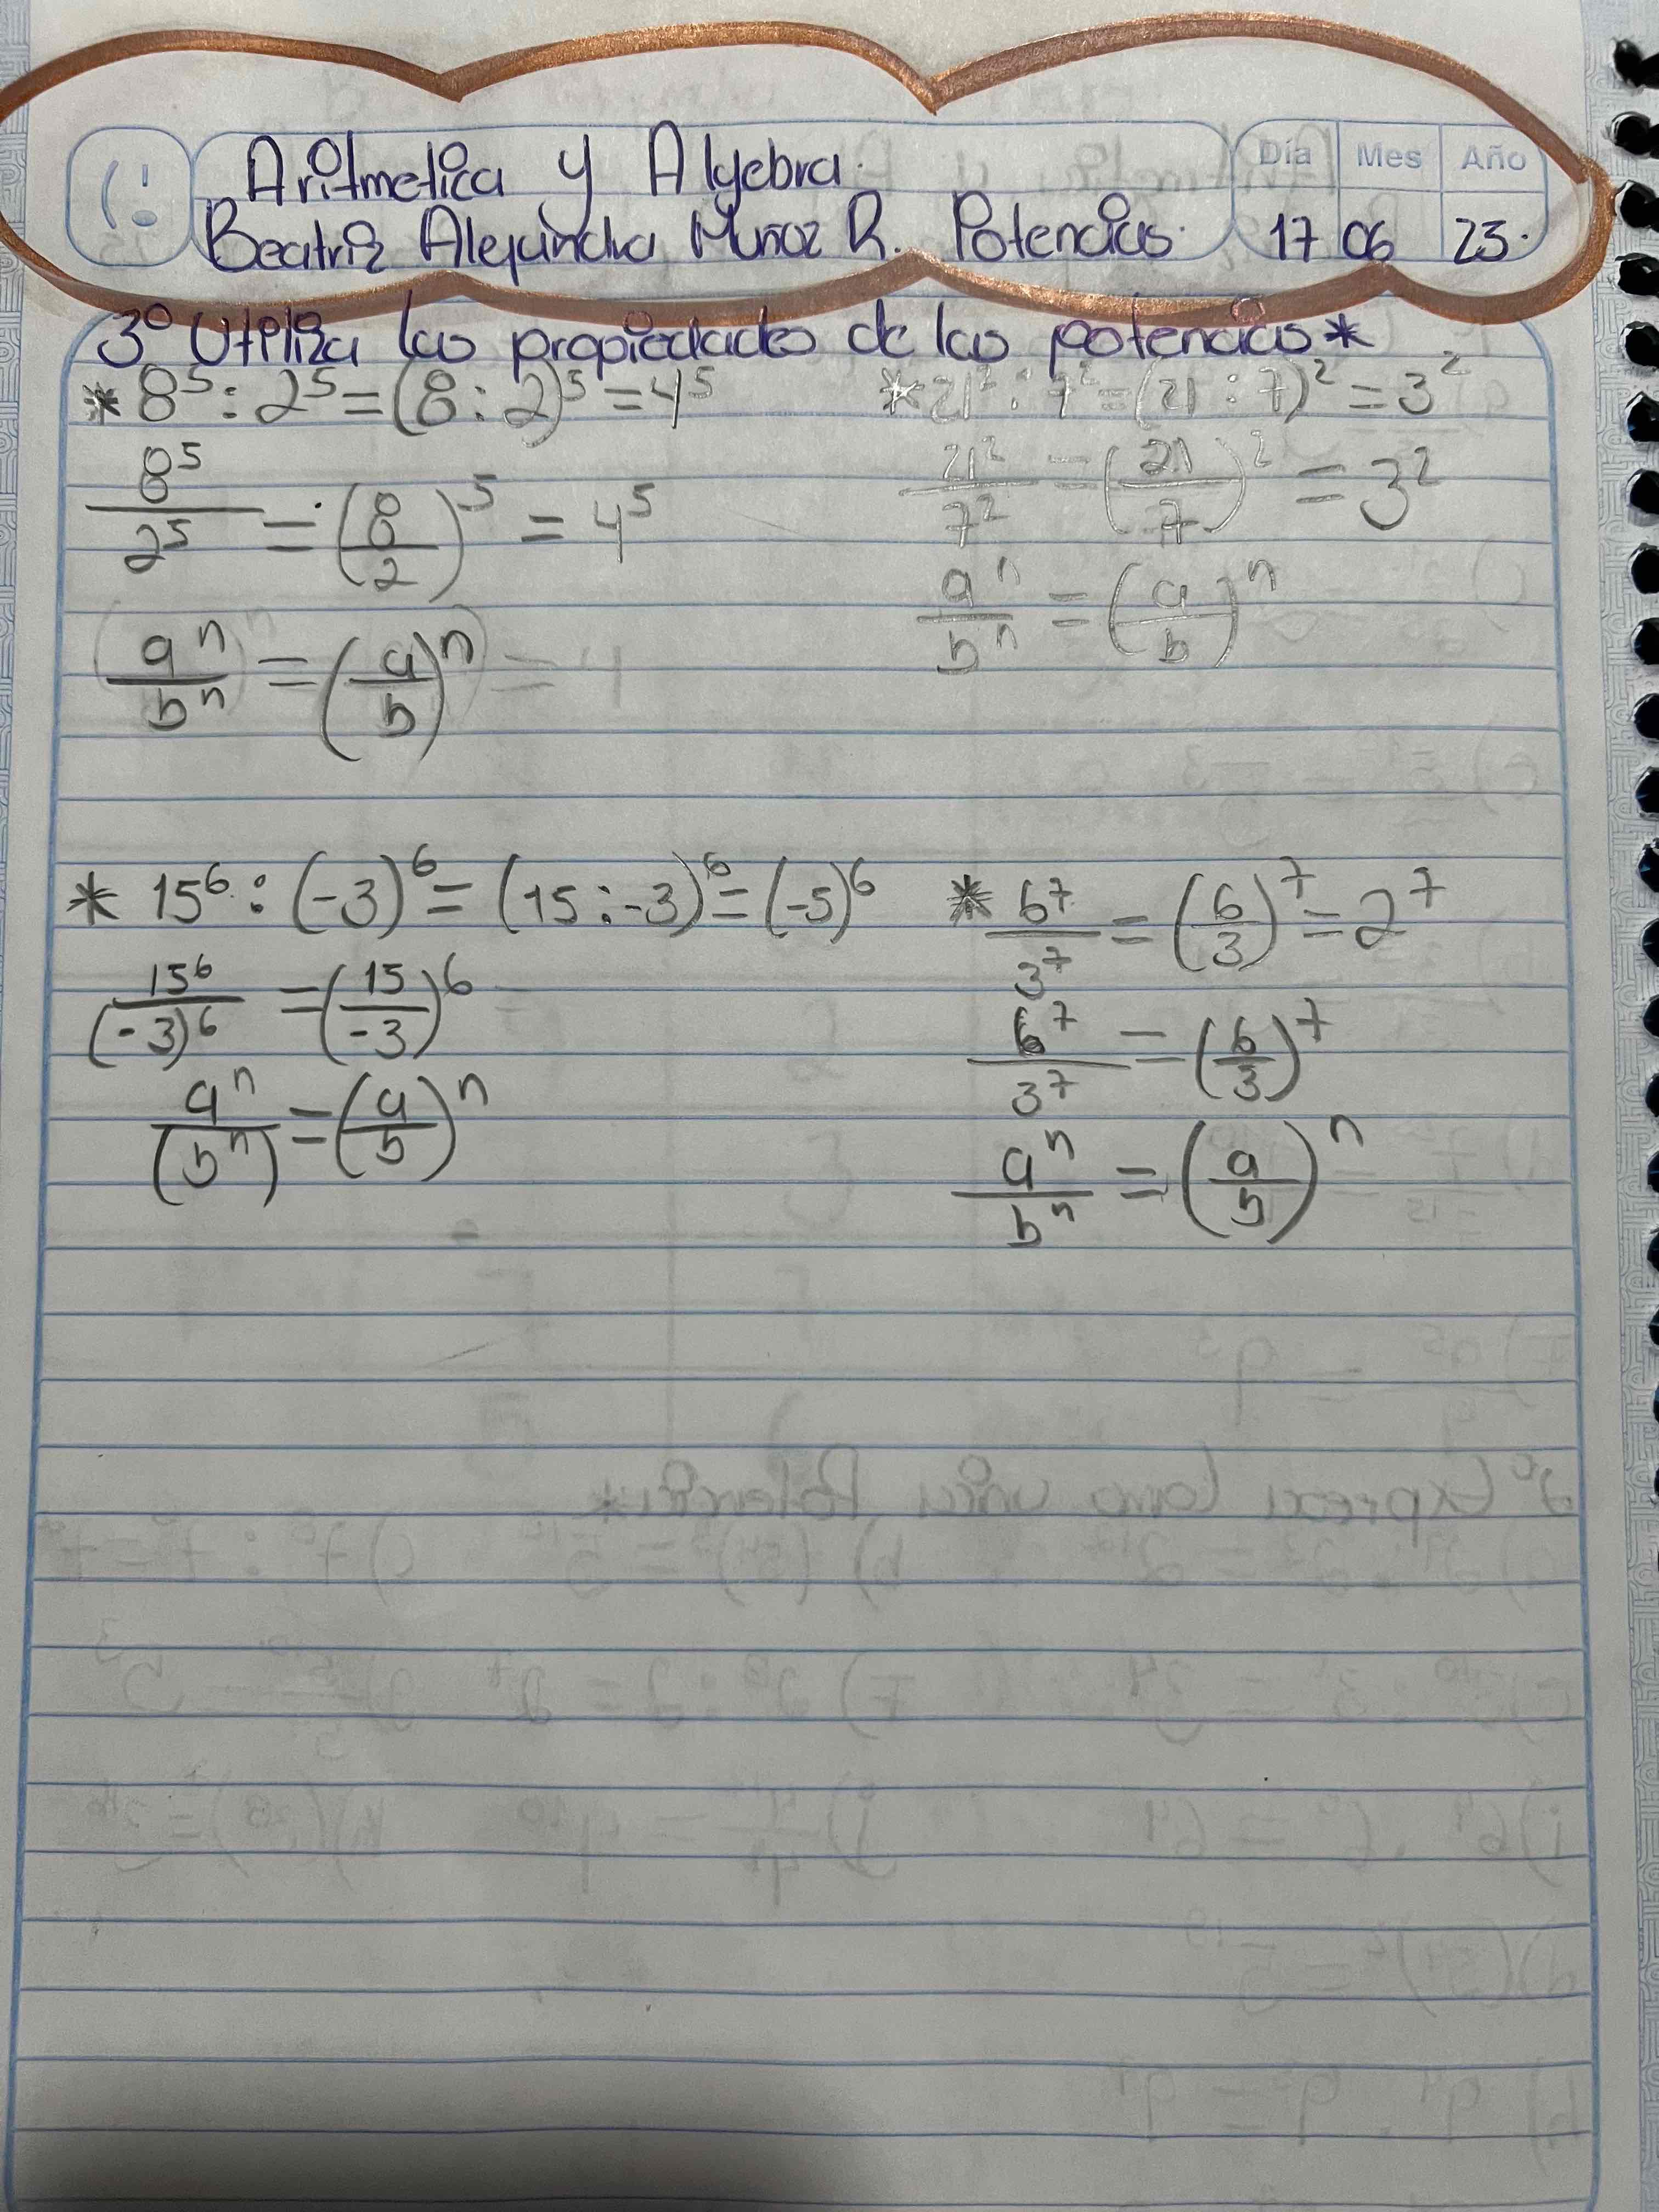 Día Mes Año
Aritmetica y Algebra.
Beatriz Alejandra Muñoz R. Potencias. 17 06 23.
3º Utiliza las propiedades de las potencias*
* 8⁵ : 2⁵ = (8 : 2)⁵ = 4⁵
8⁵/2⁵ = (8/2)⁵ = 4⁵
aⁿ/bⁿ = (a/b)ⁿ
* 21² : 7² = (21 : 7)² = 3²
21²/7² = (21/7)² = 3²
aⁿ/bⁿ = (a/b)ⁿ
* 15⁶ : (-3)⁶ = (15 : -3)⁶ = (-5)⁶
15⁶/(-3)⁶ = (15/-3)⁶
aⁿ/(bⁿ) = (a/b)ⁿ
* 6⁷/3⁷ = (6/3)⁷ = 2⁷
6⁷/3⁷ = (6/3)⁷
aⁿ/bⁿ = (a/b)ⁿ